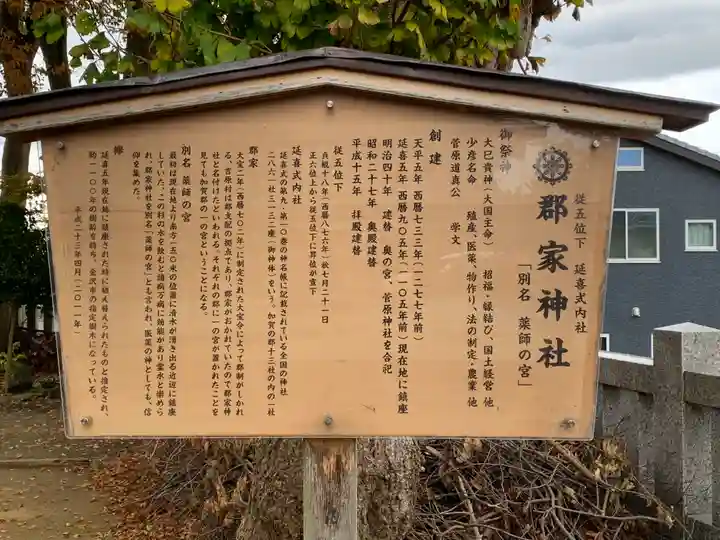 従五位下　延喜式内社
郡家神社
「別名　薬師の宮」
御祭神
大己貴神（大国主命）　招福・縁結び、国土経営 他
少彦名命　殖産、医薬、物作り、法の制定・農業 他
菅原道真公　学文
創建
天平五年　西暦七三三年（一二七七年前）
延喜五年　西暦九〇五年（一一〇五年前）現在地に鎮座
明治四十年　建替　奥の宮、菅原神社を合祀
昭和二十七年　奥殿建替
平成十五年　拝殿建替
従五位下
貞観十八年（西暦八七六年）秋七月二十一日
正六位上から従五位下に昇位が宣下
延喜式内社
延喜式の第九、第一〇巻の神名帳に記載されている全国の神社
二八六一社三一三二座（御神体）をいう。加賀の郡十三社の内の一社
郡家
大宝二年（西暦七〇二年）に制定された大宝令によって郡制がしかれ
る、吉原村は郡支配の拠点であり、郡家がおかれていたので郡家神
社と名付けたといわれる。それぞれの郡に一の宮が置かれたことを
見ても加賀郡の一の宮ということになる。
別名　薬師の宮
最初は現在地より南方一五〇米の位置に清水が湧き出る近辺に鎮座
していた。この村の水を飲むと諸病万病に効能があり霊水と崇めら
れ、郡家神社を別名「薬師の宮」とも言われ、医薬の神としても、信
仰を集めた。
欅
延喜五年現在地に鎮座された時に植え替えられたものと推定され、
約一一〇〇年の樹齢を時ち、金沢市の指定樹木になっている。
平成二十三年四月（二〇一一年）